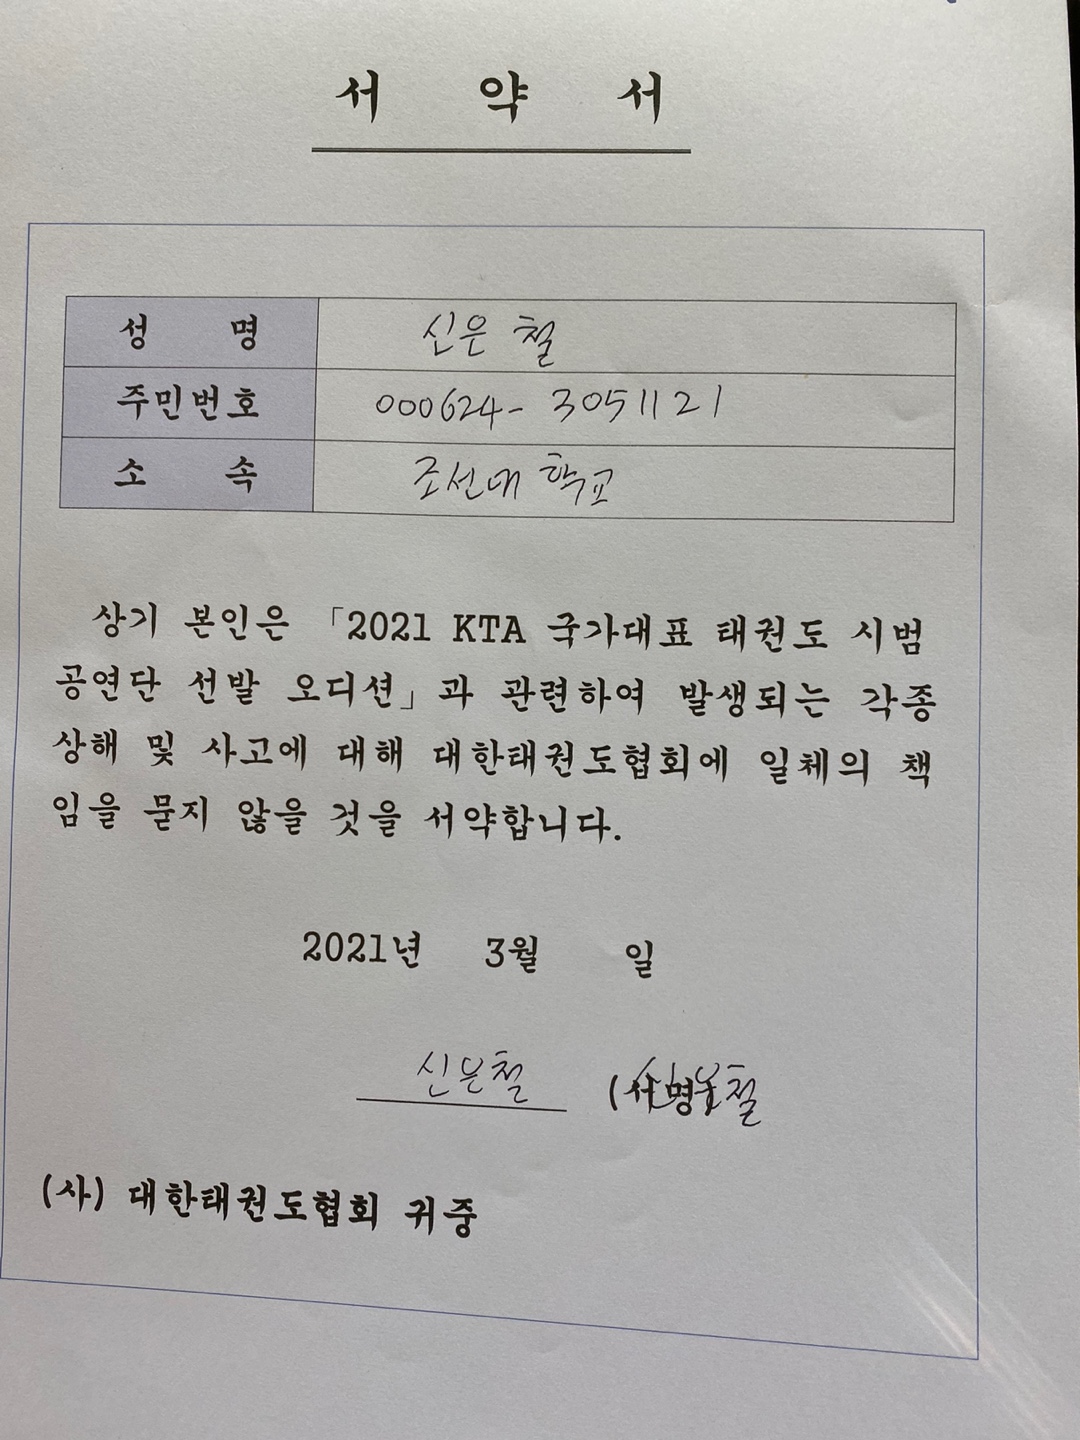 서 약 서
성 명 신은철
주민번호 000624-3051121
소 속 조선대학교
상기 본인은 「2021 KTA 국가대표 태권도 시범
공연단 선발 오디션」과 관련하여 발생되는 각종
상해 및 사고에 대해 대한태권도협회에 일체의 책
임을 묻지 않을 것을 서약합니다.
2021년 3월 일
신은철 (서명) 신은철
(사) 대한태권도협회 귀중